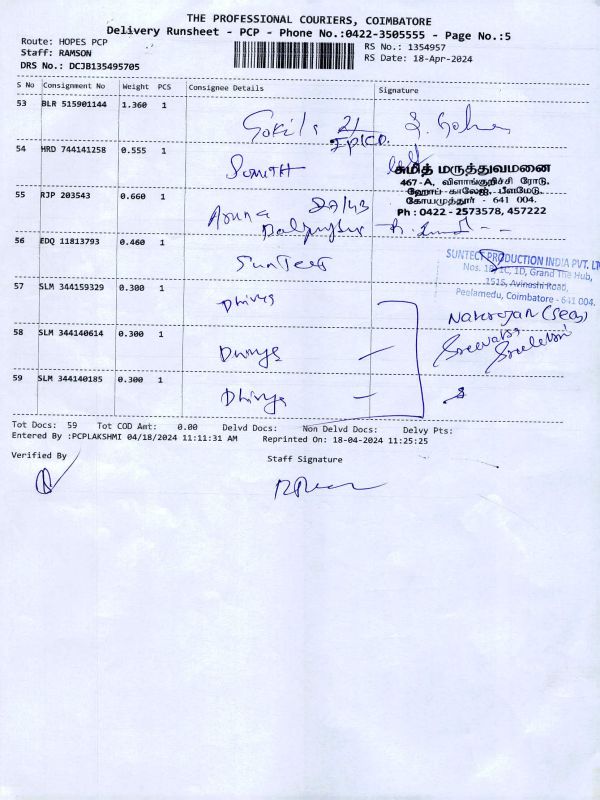 THE PROFESSIONAL COURIERS, COIMBATORE
Delivery Runsheet - PCP - Phone No.:0422-3505555 - Page No.:5
Route: HOPES PCP
RS No.: 1354957
Staff: RAMSON
RS Date: 18-Apr-2024
DRS No.: DCJB135495705
S No Consignment No Weight PCS Consignee Details Signature
53 BLR 515901144 1.360 1
54 HRD 744141258 0.555 1
சுமித் மருத்துவமனை
467-A, விளாங்குறிச்சி ரோடு,
ஹோப் காலேஜ், பீளமேடு,
கோயமுத்தூர் - 641 004.
Ph : 0422 - 2573578, 457222
55 RJP 203543 0.660 1 Aruna
56 EDQ 11813793 0.460 1 SunTect
SUNTECT PRODUCTION INDIA PVT. LTD
Nos. 1C, 1D, Grand The Hub,
1515, Avinashi Road,
Peelamedu, Coimbatore - 641 004.
57 SLM 344159329 0.300 1 Dhivya
58 SLM 344140614 0.300 1 Dhivya
59 SLM 344140185 0.300 1 Dhivya
Tot Docs: 59 Tot COD Amt: 0.00 Delvd Docs: Non Delvd Docs: Delvy Pts:
Entered By :PCPLAKSHMI 04/18/2024 11:11:31 AM Reprinted On: 18-04-2024 11:25:25
Verified By
Staff Signature